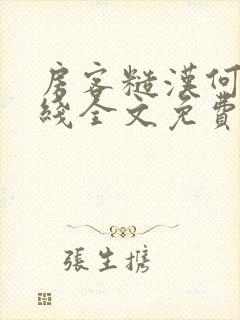 房客糙漢何
綫全文免費
張生携